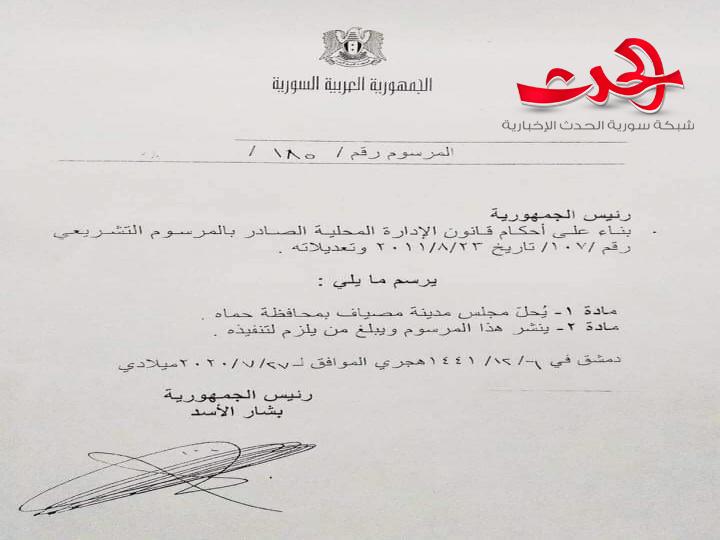 الجمهورية العربية السورية
الحدث
شبكة سورية الحدث الإخبارية
المرسوم رقم / ١٨٥ /
رئيس الجمهورية
بناء على أحكام قانون الإدارة المحلية الصادر بالمرسوم التشريعي
رقم /١٠٧/ تاريخ ٢٠١١/٨/٢٣ وتعديلاته .
يرسم ما يلي :
مادة ١- يُحلّ مجلس مدينة مصياف بمحافظة حماه .
مادة ٢- ينشر هذا المرسوم ويبلغ من يلزم لتنفيذه .
دمشق في ٦/١٢/١٤٤١ هجري الموافق لـ ٢٠٢٠/٧/٢٧ ميلادي
رئيس الجمهورية
بشار الأسد